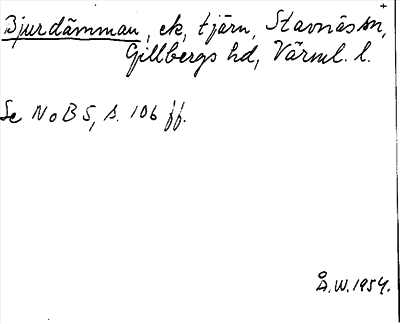 +
Bjurdämman, ek, tjärn, Stavnäs sn,
Gillbergs hd, Värml. l.
Se NoB 5, s. 106 ff.
Å.W. 1954.